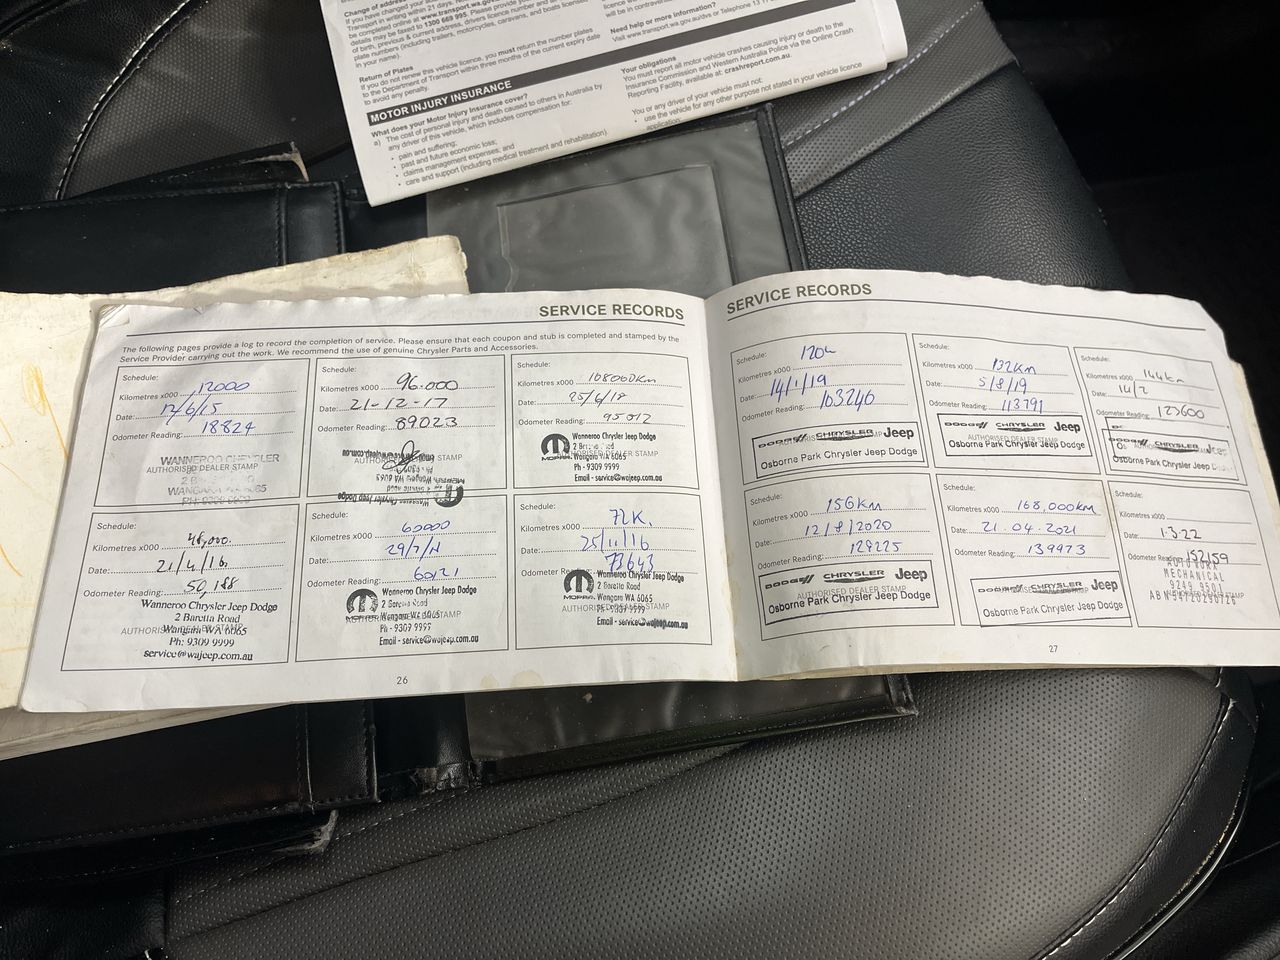 Change of address
If you have changed your
Transport in writing within 21 days.
be completed online at www.transport.wa.go
details may be faxed to 1300 669 995. Please provide you
of birth, previous & current address, drivers licence number and
plate numbers (including trailers, motorcycles, caravans, and boats licensed
in your name).
Return of Plates
If you do not renew this vehicle licence, you must return the number plates
to the Department of Transport within three months of the current expiry date
to avoid any penalty.
MOTOR INJURY INSURANCE
What does your Motor Injury Insurance cover?
a) The cost of personal injury and death caused to others in Australia by
any driver of this vehicle, which includes compensation for:
• pain and suffering;
• past and future economic loss;
• claims management expenses; and
• care and support (including medical treatment and rehabilitation).
will be in contraven
Need help or more information?
Visit www.transport.wa.gov.au/dvs or Telephone 13 11
Your obligations
You must report all motor vehicle crashes causing injury or death to the
Insurance Commission and Western Australia Police via the Online Crash
Reporting Facility, available at: crashreport.com.au.
You or any driver of your vehicle must not:
• use the vehicle for any other purpose not stated in your vehicle licence
application;
SERVICE RECORDS
The following pages provide a log to record the completion of service. Please ensure that each coupon and stub is completed and stamped by the
Service Provider carrying out the work. We recommend the use of genuine Chrysler Parts and Accessories.
Schedule:
Kilometres x000 12000
Date: 17/6/15
Odometer Reading: 18824
WANNEROO CHRYSLER
AUTHORISED DEALER STAMP
WANGARA WA 6065
PH: 9309 9999
Schedule:
Kilometres x000 96.000
Date: 21-12-17
Odometer Reading: 89023
AUTHORISED DEALER STAMP
Wanneroo Chrysler Jeep Dodge
Schedule:
Kilometres x000 108000km
Date: 25/6/18
Odometer Reading: 95012
MOPAR
Wanneroo Chrysler Jeep Dodge
AUTHORISED DEALER STAMP
Wangara WA 6065
Ph - 9309 9999
Email - service@wajeep.com.au
Schedule:
Kilometres x000 48,000.
Date: 21/4/16
Odometer Reading: 50,188
Wanneroo Chrysler Jeep Dodge
2 Baretta Road
AUTHORISED DEALER STAMP
Wangara WA 6065
Ph: 9309 9999
service@wajeep.com.au
Schedule:
Kilometres x000 60000
Date: 29/7/
Odometer Reading: 60121
MOPAR
Wanneroo Chrysler Jeep Dodge
2 Baretta Road
AUTHORISED DEALER STAMP
Wangara WA 6065
Ph - 9309 9999
Email - service@wajeep.com.au
Schedule:
Kilometres x000 72K.
Date: 25/11/16
Odometer Reading: 73643
MOPAR
Wanneroo Chrysler Jeep Dodge
2 Baretta Road
Wangara WA 6065
AUTHORISED DEALER STAMP
Ph - 9309 9999
Email - service@wajeep.com.au
26
SERVICE RECORDS
Schedule:
Kilometres x000 120k
Date: 14/1/19
Odometer Reading: 103246
DODGE CHRYSLER Jeep
AUTHORISED DEALER STAMP
Osborne Park Chrysler Jeep Dodge
Schedule:
Kilometres x000 132km
Date: 5/8/19
Odometer Reading: 113791
DODGE CHRYSLER Jeep
AUTHORISED DEALER STAMP
Osborne Park Chrysler Jeep Dodge
Schedule:
Kilometres x000 144km
Date: 14/2
Odometer Reading: 123600
CHRYSLER Jeep
AUTHORISED DEALER STAMP
Osborne Park Chrysler Jeep
Schedule:
Kilometres x000 156km
Date: 12/8/2020
Odometer Reading: 129225
DODGE CHRYSLER Jeep
AUTHORISED DEALER STAMP
Osborne Park Chrysler Jeep Dodge
Schedule:
Kilometres x000 168,000km
Date: 21.04.2021
Odometer Reading: 139973
DODGE CHRYSLER Jeep
AUTHORISED DEALER STAMP
Osborne Park Chrysler Jeep Dodge
Schedule:
Kilometres x000
Date: 1.3.22
Odometer Reading: 152159
MECHANICAL
9249 9501
AUTHORISED DEALER STAMP
27